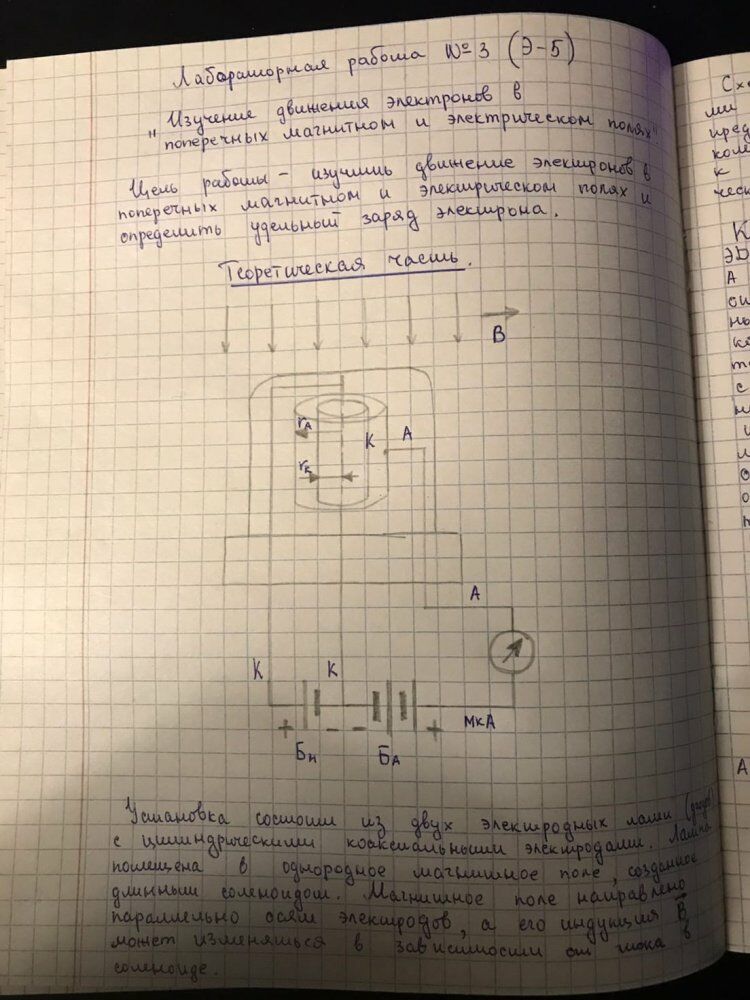 Лабораторная работа №3 (Э-5)
"Изучение движения электронов в
поперечных магнитном и электрическом полях"
Цель работы - изучить движение электронов в
поперечных магнитном и электрическом полях и
определить удельный заряд электрона.
Теоретическая часть.
B
rА
К А
rк
А
К К
+ - - + мкА
Бн БА
Установка состоит из двух электродных ламп (диодов)
с цилиндрическими коаксиальными электродами. Лампа
помещена в однородное магнитное поле, созданное
длинным соленоидом. Магнитное поле направлено
параллельно осям электродов, а его индукция B
может изменяться в зависимости от тока в
соленоиде.
Схе
ми
пред
кол
к
ческ
К
ЭД
А
ош
ны
ко
с
н
и
о
о
А